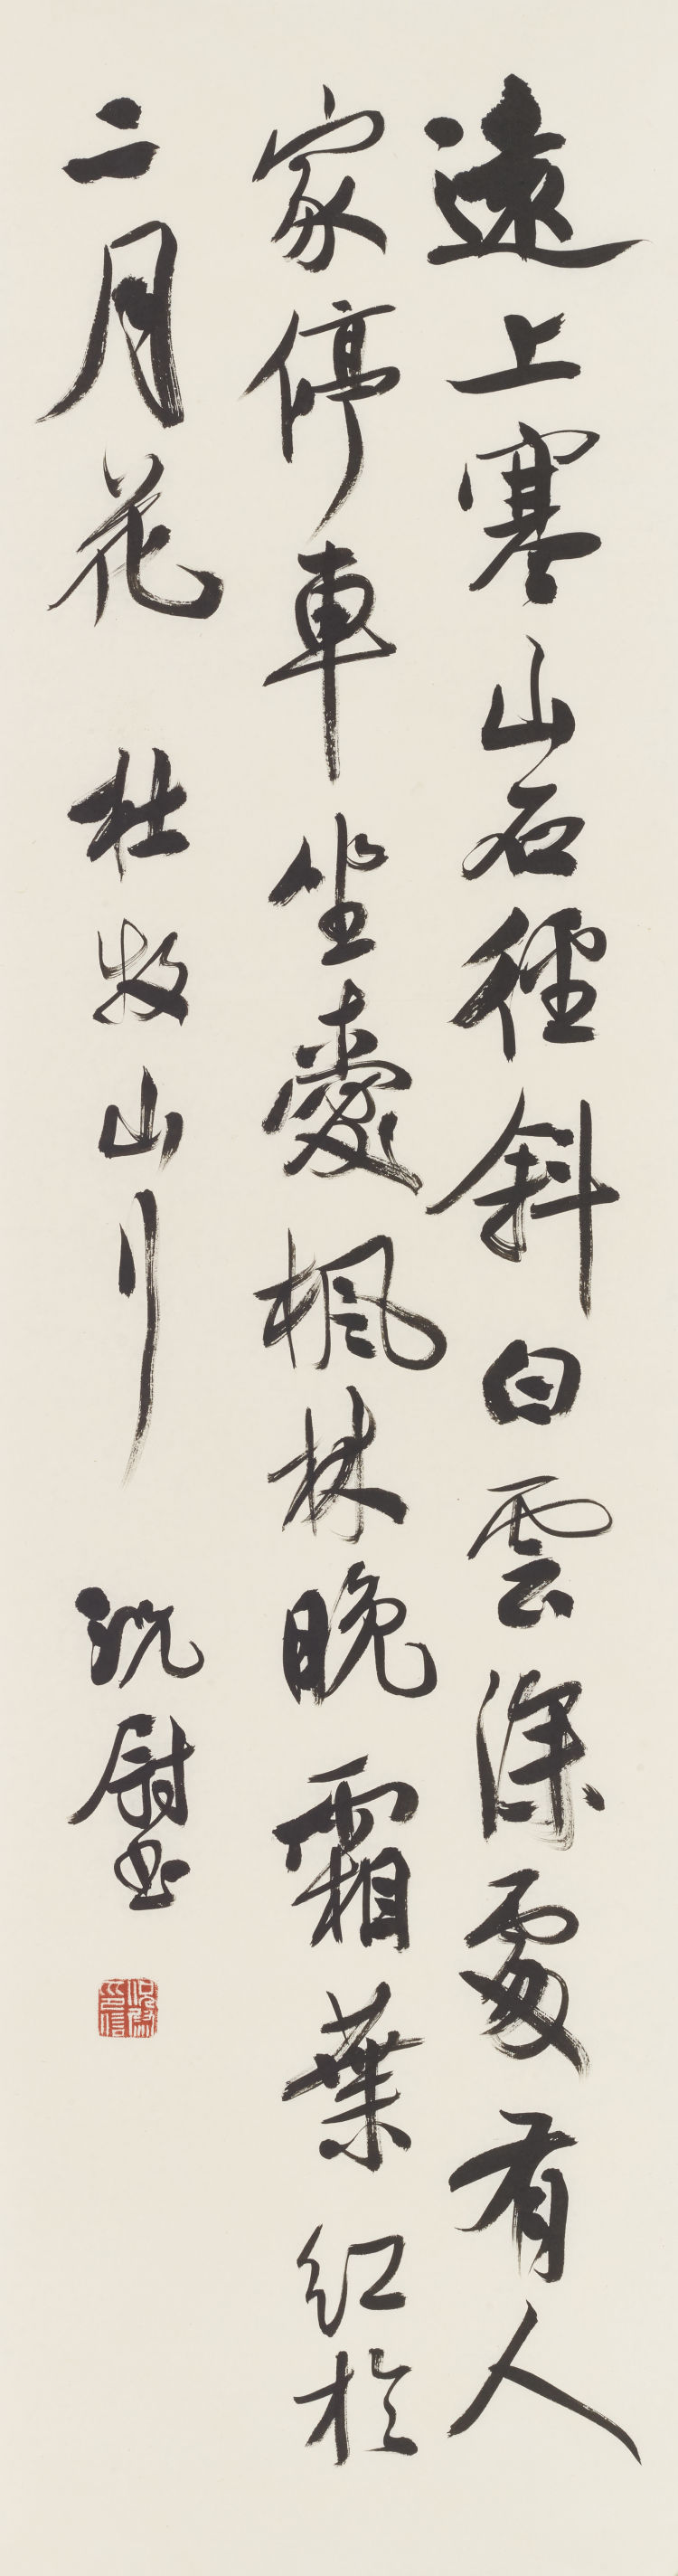 遠上寒山石徑斜白雲深處有人
家停車坐愛楓林晚霜葉紅於
二月花 杜牧山行 沈尉書